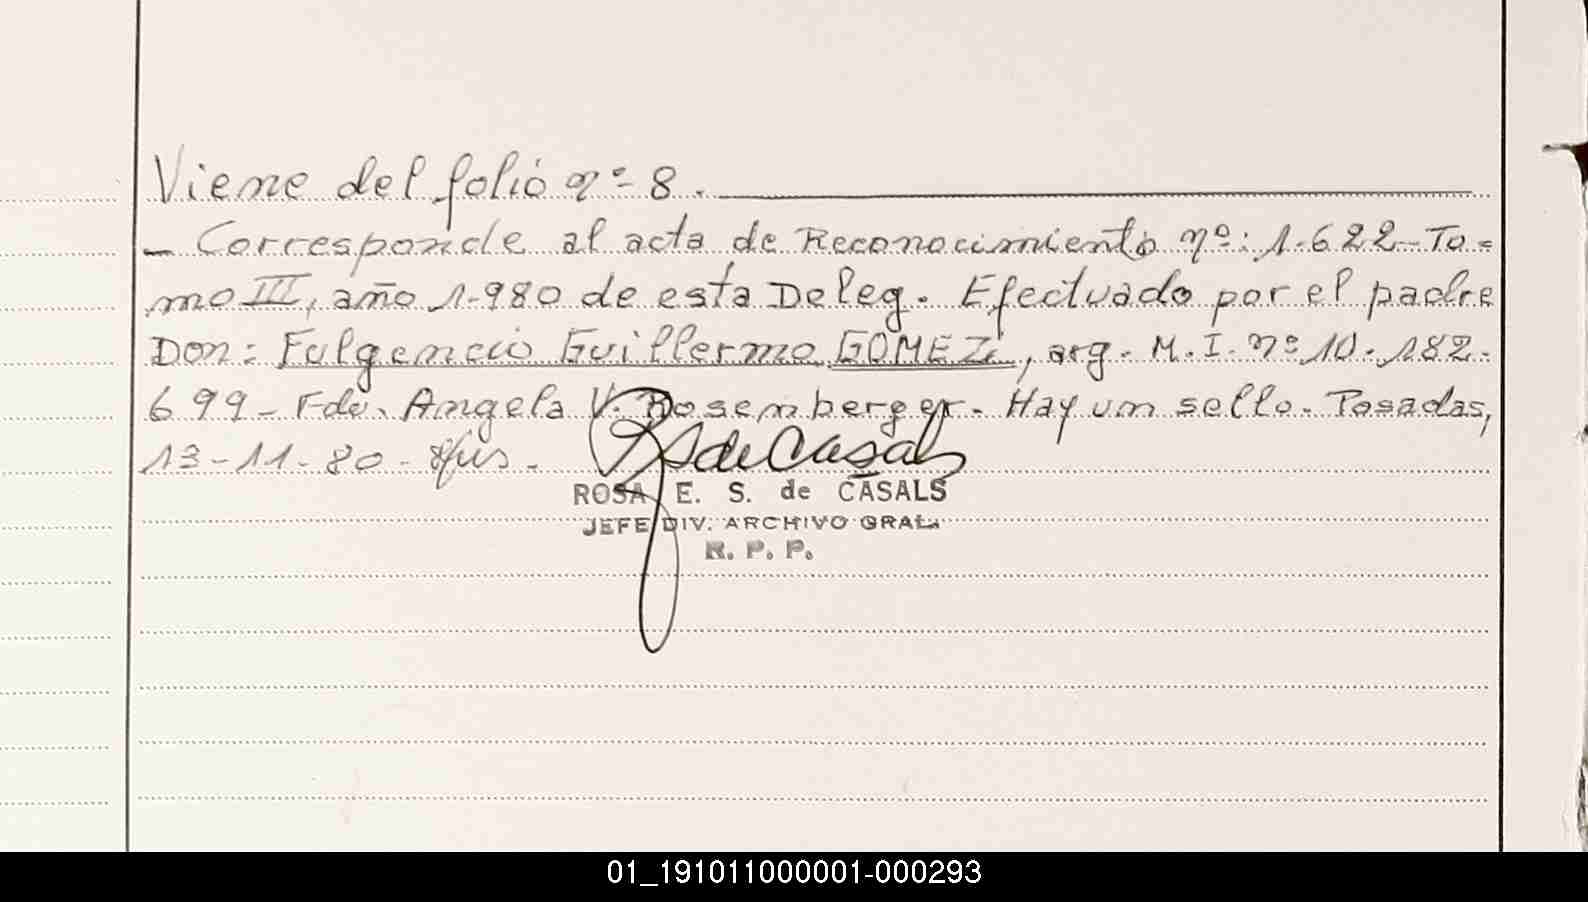 Viene del folio nº 8.
- Corresponde al acta de Reconocimiento nº: 1.622- To=
mo III, año 1.980 de esta Deleg. Efectuado por el padre
Don: Fulgencio Guillermo GOMEZ, arg. M.I. nº 10.182.
699- Fdo. Angela V. Rosemberger. Hay un sello. Posadas,
13-11-80-
RS de Casals
ROSA E. S. de CASALS
JEFE DIV. ARCHIVO GRAL.
R. P. P.
01_191011000001-000293